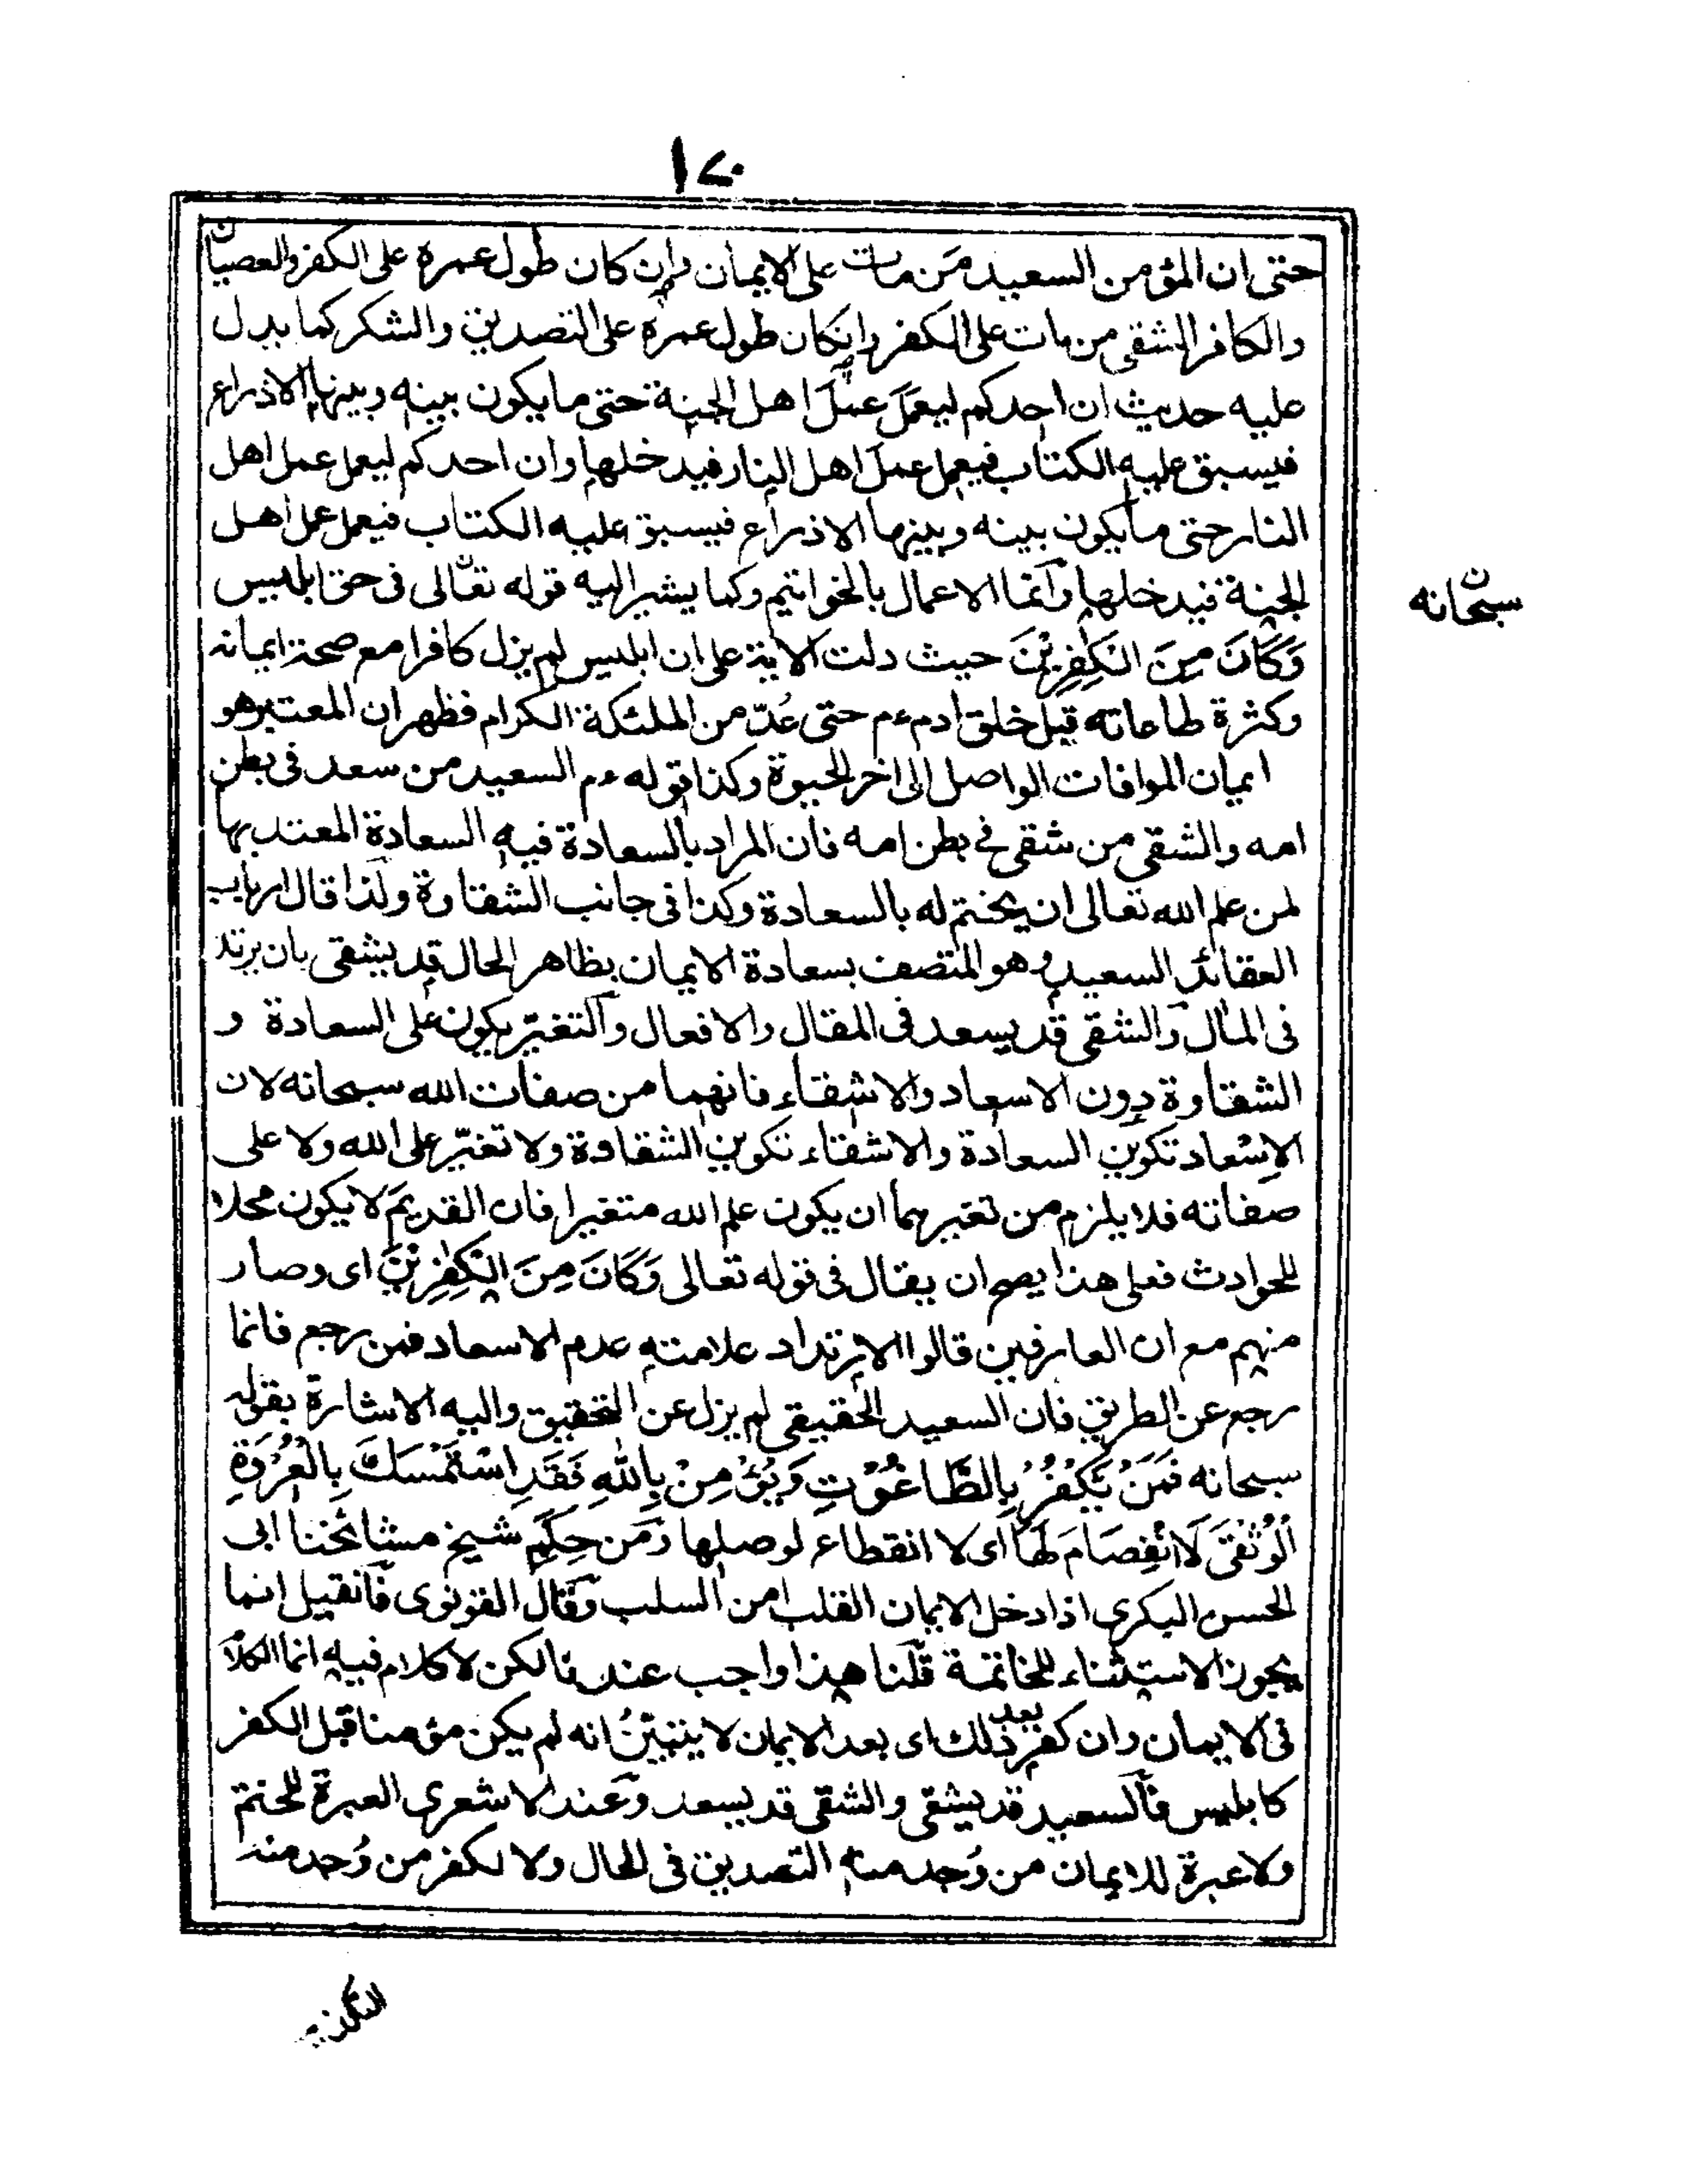 ١٧٠
حتى ان المؤمن السعيد مَن مات على الايمان وان كان طول عمره على الكفر والعصيان
والكافر الشقى من مات على الكفر وانكان طول عمره على التصديق والشكر كما يدل
عليه حديث ان احدكم ليعمَلَ عمَلَ اهل الجنة حتى ما يكون بينه وبينها الا ذراع
فيسبق عليه الكتاب فيعمل عملَ اهل النار فيدخلها وان احدكم ليعمل عمل اهل
النار حتى ما يكون بينه وبينها الا ذراع فيسبق عليه الكتاب فيعمل عمل اهل
الجنة فيدخلها وانما الاعمال بالخواتيم وكما يشير اليه قوله تعالى فى حق ابليس
سبحانه
وَكَانَ مِنَ الْكٰفِرِيْنَ حيث دلت الاية على ان ابليس لم يزل كافرا مع صحة ايمانه
وكثرة طاعاته قبل خلق ادم ءم حتى عُدّ من الملئكة الكرام فظهر ان المعتبر هو
ايمان الموافات الواصل الى اخر الحيوة وكذا قوله ءم السعيد من سعد فى بطن
امه والشقى من شقى فى بطن امه فان المراد بالسعادة فيه السعادة المعتد بها
لمن علم الله تعالى ان يختم له بالسعادة وكذا فى جانب الشقاوة ولذا قال ارباب
العقائد السعيد وهو المتصف بسعادة الايمان بظاهر الحال قد يشقى بان يرتد
فى المآل والشقى قد يسعد فى المقال والافعال والتغيّر يكون على السعادة و
الشقاوة دون الاسعاد والاشقاء فانهما من صفات الله سبحانه لان
الاِسْعاد تكوين السعادة والاشقاء تكوين الشقاوة ولا تغيّر على الله ولا على
صفاته فلا يلزم من تغيرهما ان يكون علم الله متغيرا فان القديمَ لا يكون محلا
للحوادث فعلى هذا يصح ان يقال فى قوله تعالى وَكَانَ مِنَ الْكٰفِرِيْنَ اى وصار
منهم مع ان العارفين قالوا الارتداد علامته عدم الاسعاد فمن رجع فانما
رجع عن الطريق فان السعيد الحقيقى لم يزل عن التحقيق واليه الاشارة بقوله
سبحانه فَمَنْ يَّكْفُرْ بِالطَّاغُوْتِ وَيُؤْمِنْ بِاللّٰهِ فَقَدِ اسْتَمْسَكَ بِالْعُرْوَةِ
الْوُثْقٰى لَا انْفِصَامَ لَهَا اى لا انقطاع لوصلها وَمن حِكَمِ شيخ مشائخنا ابى
الحسن البكرى اذا دخل الايمان القلب امن السلب وقال القونوى فانقيل انما
يجوز الاستثناء للخاتمة قلنا هذا واجب عندنا لكن لا كلام فيه انما الكلام
فى الايمان وان كفر بعد ذلك اى بعد الايمان لا يتبيّنُ انه لم يكن مؤمنا قبل الكفر
كابليس فالسعيد قد يشقى والشقى قد يسعد وعند الاشعرى العبرة للختم
ولا عبرة للايمان من وُجد منه التصديق فى الحال ولا لكفر من وُجد منه
التكذيب